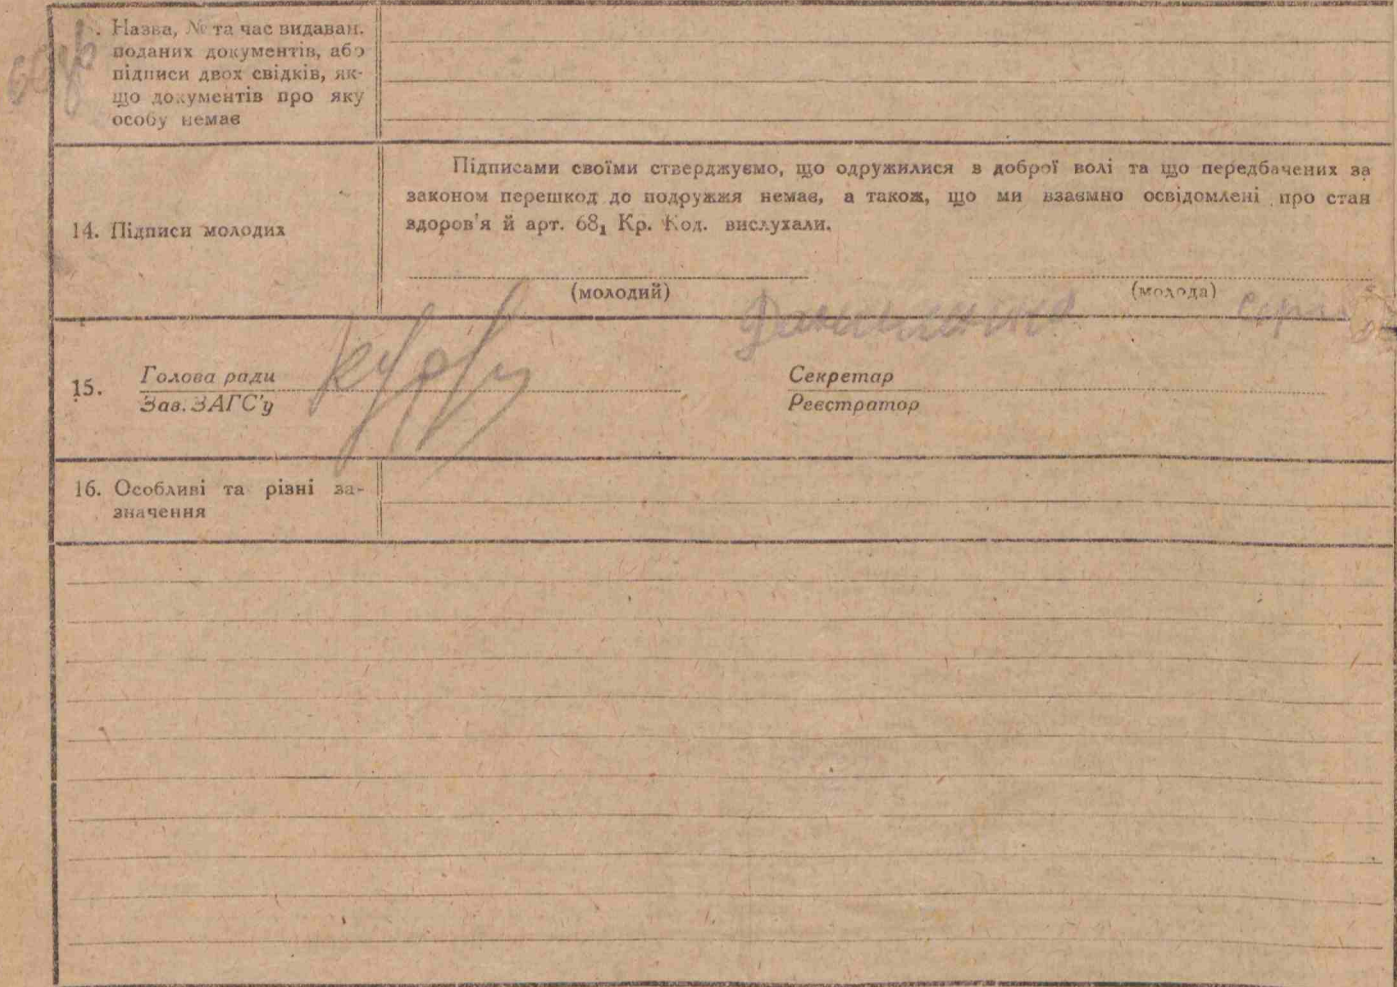 . Назва, № та час видаван.
поданих документів, або
підписи двох свідків, як-
що документів про яку
особу немає
14. Підписи молодих
Підписами своїми стверджуємо, що одружилися в доброї волі та що передбачених за
законом перешкод до подружжя немає, а також, що ми взаємно освідомлені про стан
здоров'я й арт. 68₁ Кр. Код. вислухали.
(молодий) (молода)
Даниленко
15. Голова ради Секретар
Зав. ЗАГС'у Реєстратор
16. Особливі та різні за-
значення